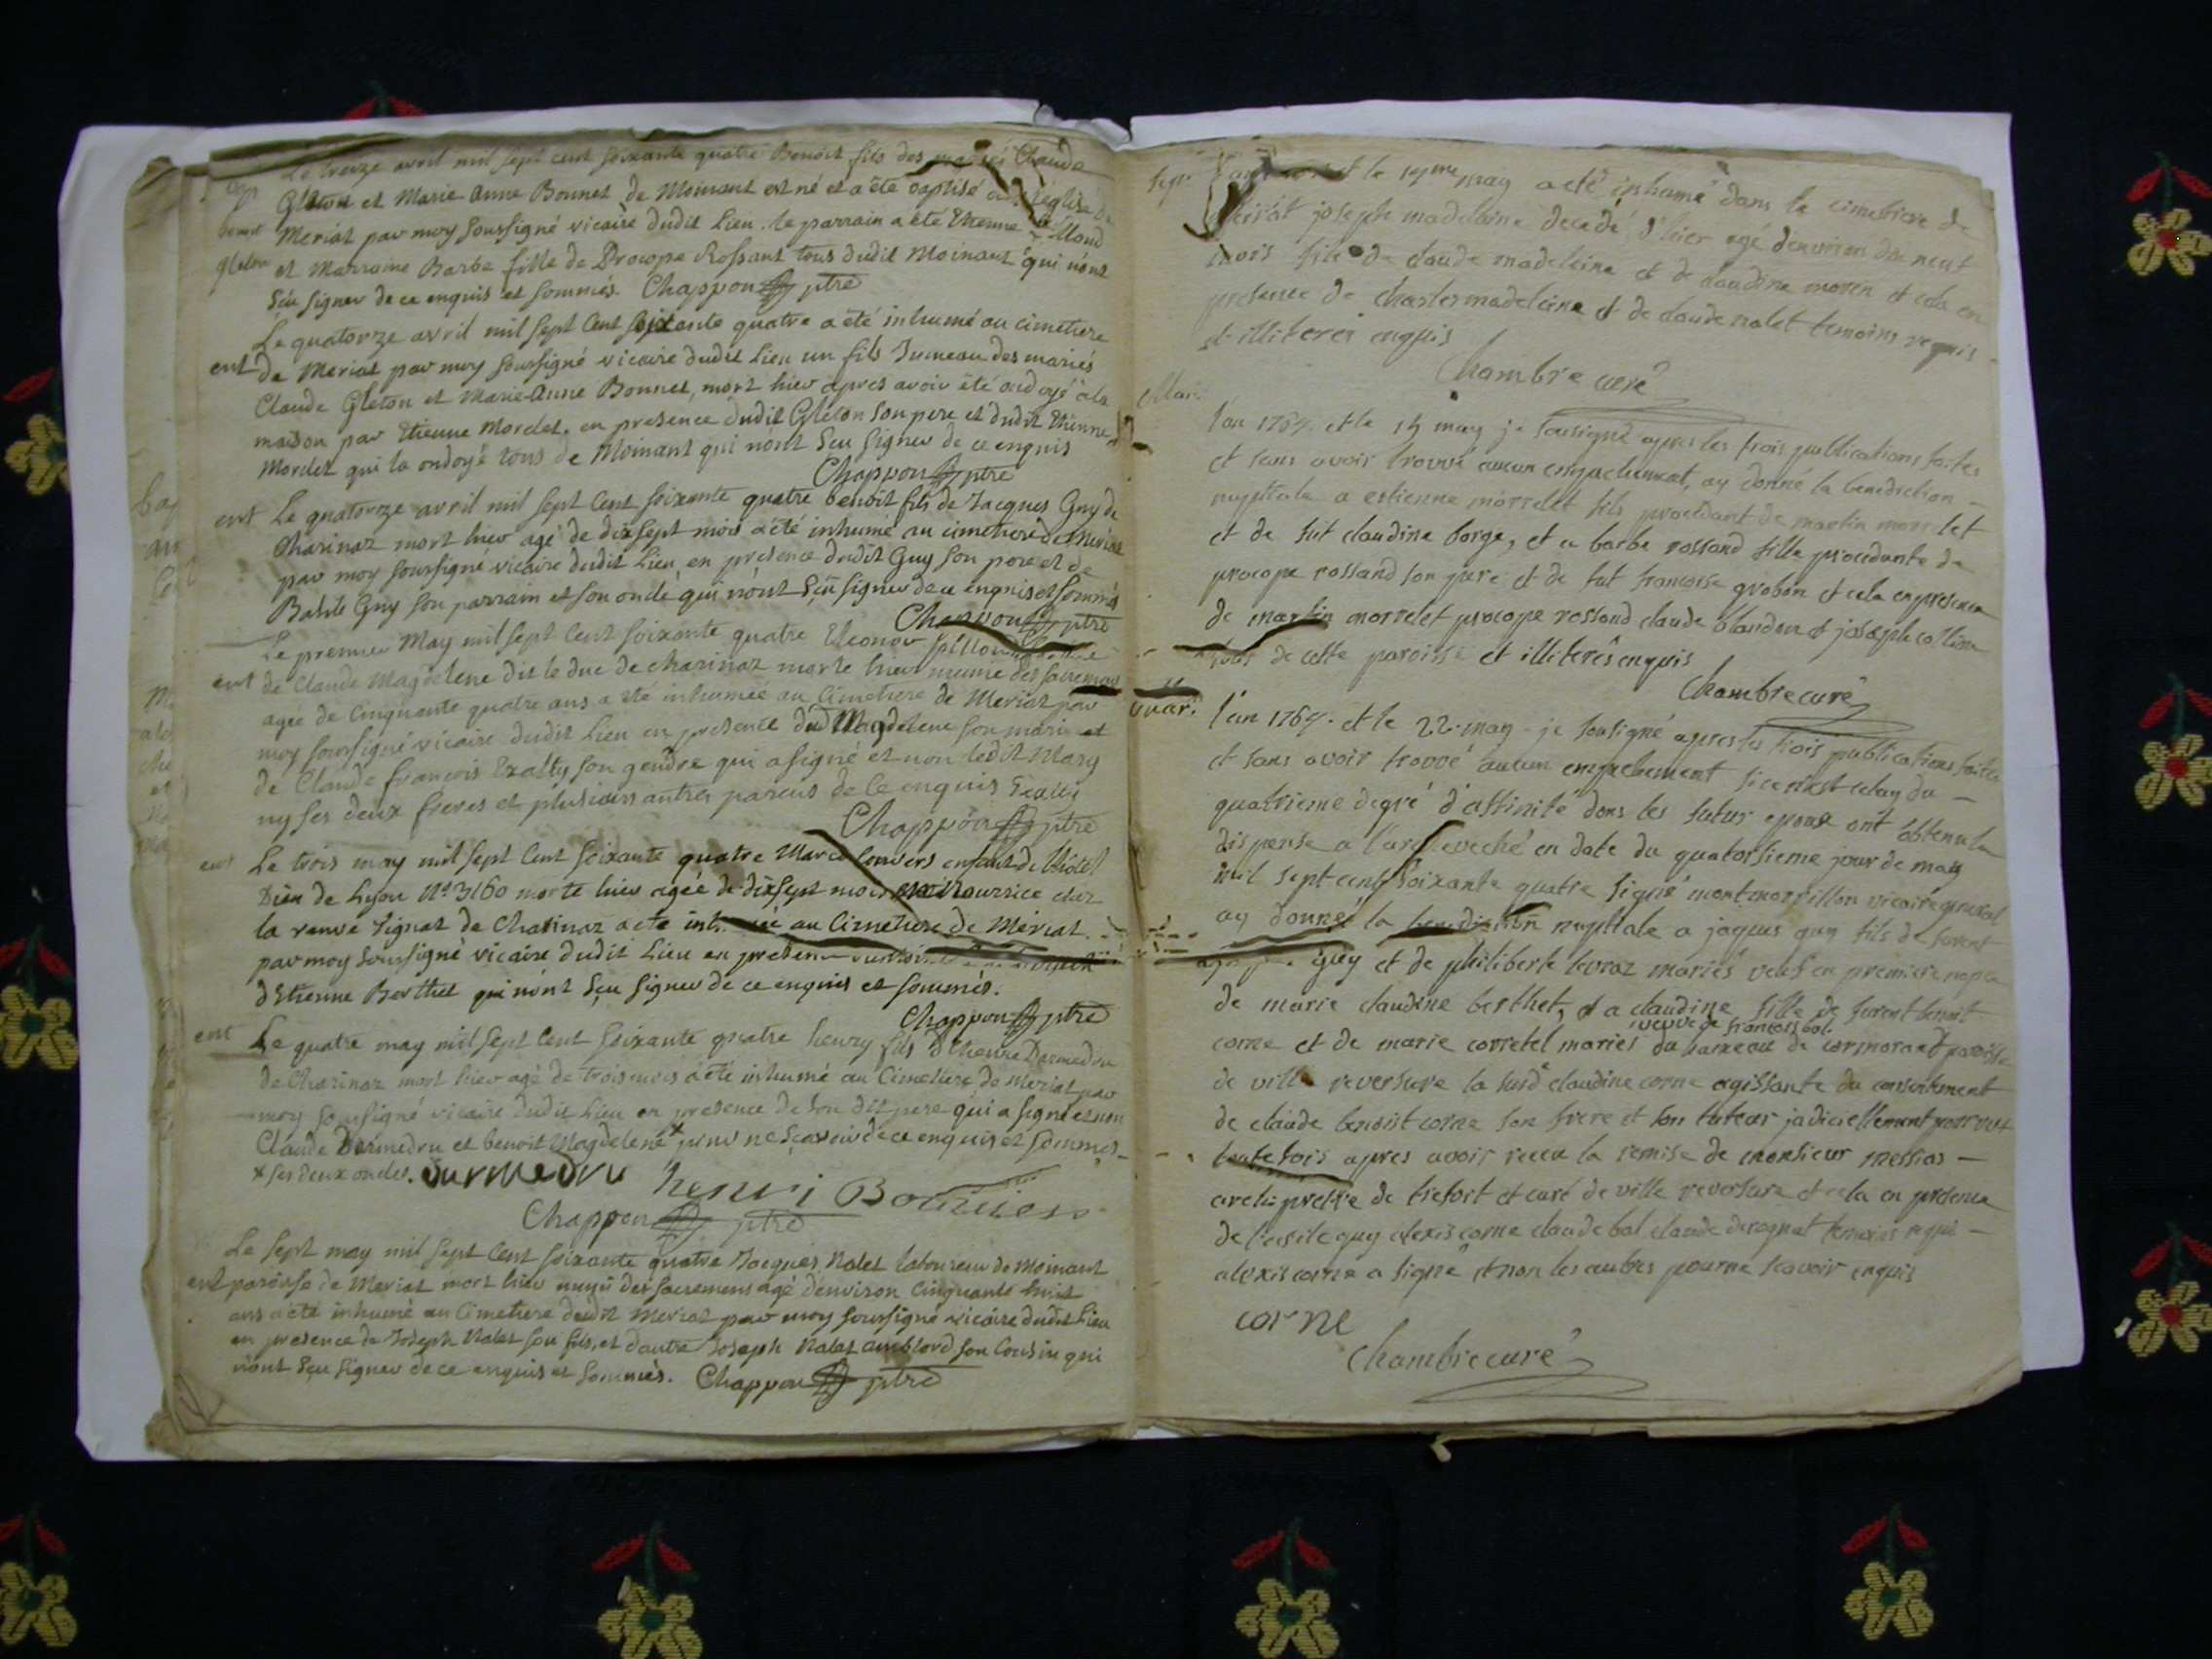 Le treize avril mil sept cent soixante quatre Benoit fils des mariés Claude
Gleton et Marie Anne Bonnet de Moinant est né et a été baptisé l'église de
Meriat par moy soussigné vicaire dudit Lieu. le parrain a été Etienne
et Marraine Barbe fille de Procope Rossant tous dudit Moinant qui n'ont
sçu signer de ce enquis et sommés. Chappon ptre
benoit
Gleton
Le quatorze avril mil sept cent soixante quatre a été inhumé au cimetiere
ent de Meriat par moy soussigné vicaire dudit Lieu un fils Jumeau des mariés
Claude Gleton et Marie-Anne Bonnet, mort hier apres avoir été ondoyé a la
maison par Etienne Morelet. en presence dudit Gleton son pere et dudit Etienne
Morelet qui la ondoyé tous de Moinant qui nont sçu signer de ce enquis
Chappon ptre
ent Le quatorze avril mil sept cent soixante quatre benoit fils de Jacques Guy de
Charinaz mort hier agé de dix sept mois a été inhumé au cimetiere de Meriat
par moy soussigné vicaire dudit Lieu en presence dudit Guy son pere et de
Guy son parrain et son oncle qui n'ont sçu signer de ce enquis et sommés
Chappon ptre
Le premier May mil sept cent soixante quatre Eleonor
ent de Claude Magdelene dit le duc de charinaz morte hier munie des sacremens
agée de cinquante quatre ans a été inhumée au Cimetiere de Meriat par
moy soussigné vicaire dudit Lieu en presence dud Magdelene son mari et
de Claude francois son gendre qui a signé et non ledit Mary
ny ses deux freres et plusieurs autres parens de ce enquis
Chappon ptre
ent Le trois may mil sept cent soixante quatre Marie enfant de l'hôtel
Dieu de Lyon N° 3160 morte hier agée de dix sept mois en nourrice chez
la veuve Tignat de Charinaz a été au Cimetiere de Meriat
par moy soussigné vicaire dudit Lieu en
d'Etienne Berthet qui n'ont sçu signer de ce enquis et sommés.
Chappon ptre
ent Le quatre may mil sept cent soixante quatre henry fils d'Etienne Durmedru
de Charinaz mort hier agé de trois mois a été inhumé au Cimetiere de Meriat par
moy soussigné vicaire dudit Lieu en presence de son dit pere qui a signé et non
Claude Durmedru et benoit Magdelene x pour ne sçavoir de ce enquis et sommés
x ses deux oncles. Durmedru henri
Chappon ptre
Le sept may mil sept cent soixante quatre Jacques Nalet laboureur de Moinant
ent paroisse de Meriat mort hier muni des sacremens agé d'environ cinquante huit
ans a été inhumé au Cimetiere dudit Meriat par moy soussigné vicaire dudit Lieu
en presence de Joseph Nalet son fils, et d'autre Joseph Nalet son Cousin qui
n'ont sçu signer de ce enquis et sommés. Chappon ptre
et le may a eté inhumé dans le cimetiere de
joseph madeleine decedé d'hier agé d'environ de neuf
mois fils de claude madeleine et de claudine et cela en
presence de charles madeleine et de claude nalet temoins requis
et illiteres enquis
Chambre curé
Mari.
l'an 1764. et le 15 may je sousigné apres les trois publications faites
et sans avoir trouvé aucun empechement, ay donné la benediction
nuptiale a estienne morrelet fils procedant de martin morrelet
et de fut claudine borge, et a barbe rossand fille procedante de
procope rossand son pere et de fut francoise grobon et cela en presence
de martin morrelet procope rossand claude blandon et joseph
tous de cette paroisse et illiterés enquis
Chambre curé
mar. l'an 1764. et le 22. may je sousigné apres les trois publications faites
et sans avoir trouvé aucun empechement si ce n'est celuy du
quatrieme degré d'affinité dons les futur epoux ont obtenu la
dispense a l'archeveché en date du quatorsieme jour de may
mil sept cent soixante quatre signé montmorrillon vicaire general
ay donnée la benediction nuptiale a jaques guy fils de furent
guy et de philiberte levraz mariés veuf en premiere nopce
de marie claudine berthet, et a claudine fille de furent benoit
veuve de francois bal
corne et de marie corretel mariés du hameau de cormorand paroisse
de ville reversure la susd claudine corne agissante du consentement
de claude benoist corne son frere et son tuteur judiciellement pourveu
toutefois apres avoir receu la remise de monsieur messias
archipretre de trefort et curé de ville reversure et cela en presence
de guy alexis corne claude bal claude temoins requis
alexis corne a signé et non les autres pour ne scavoir enquis
corne
Chambre curé